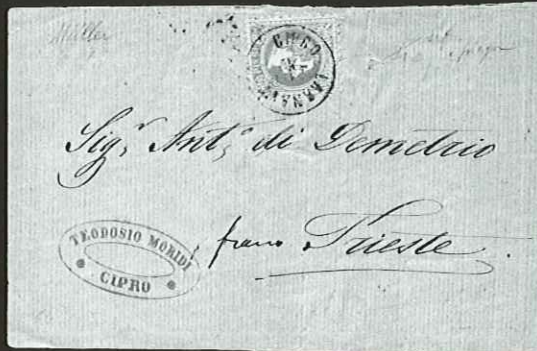 Müller
CIPRO
LARNACA
Sigr. Anto. di Demetrio
franco Trieste
TEODOSIO MORIDI
CIPRO